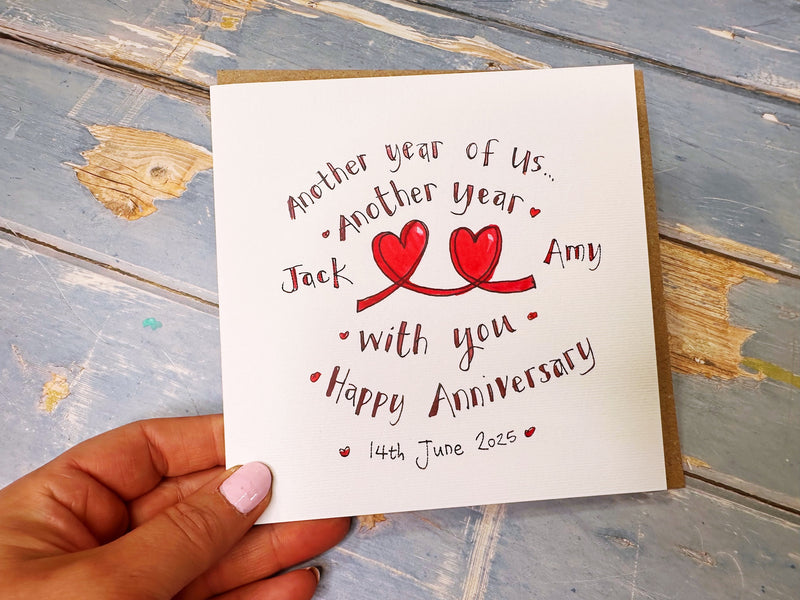 Another year of us...
Another year
Jack Amy
with you
Happy Anniversary
14th June 2025